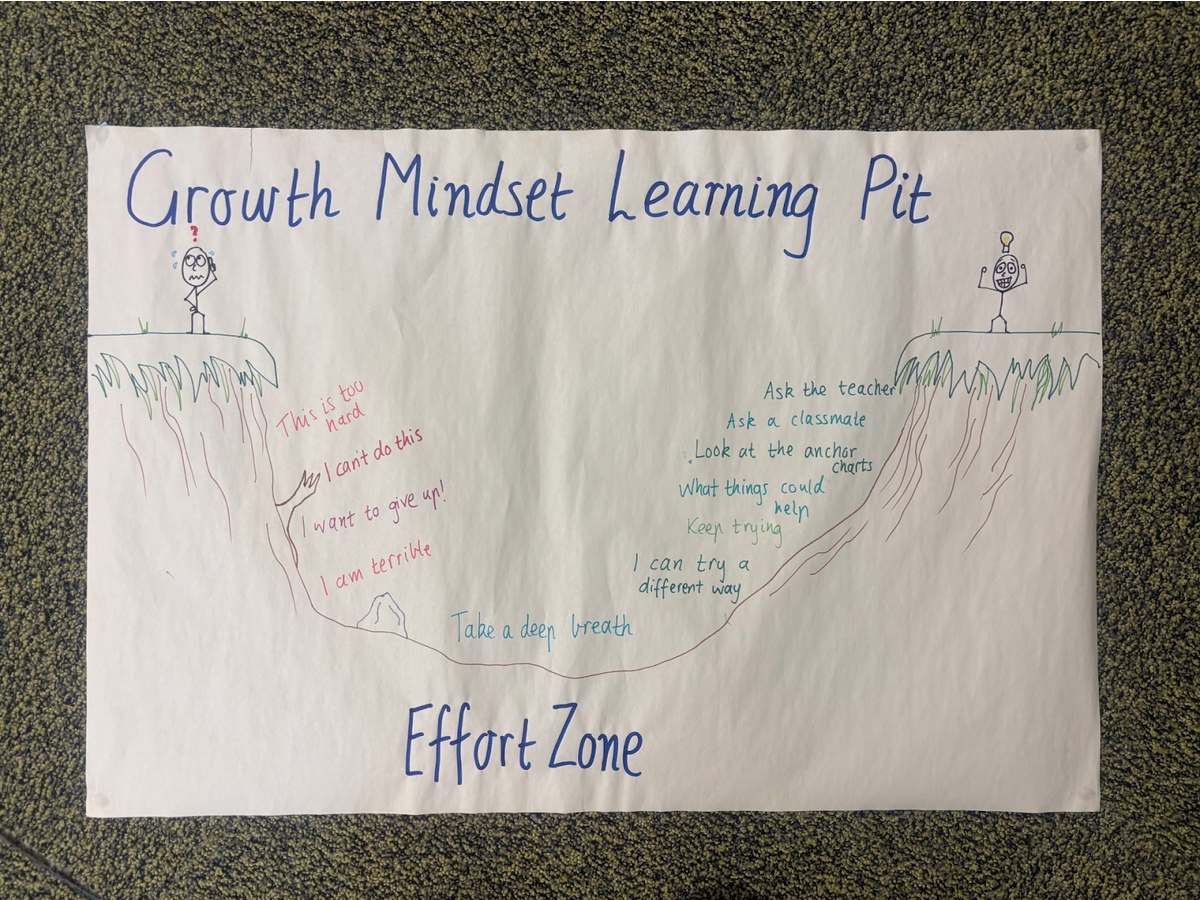 Growth Mindset Learning Pit
?
This is too
hard
I can't do this
I want to give up!
I am terrible
Take a deep breath
Ask the teacher
Ask a classmate
Look at the anchor
charts
What things could
help
Keep trying
I can try a
different way
Effort Zone